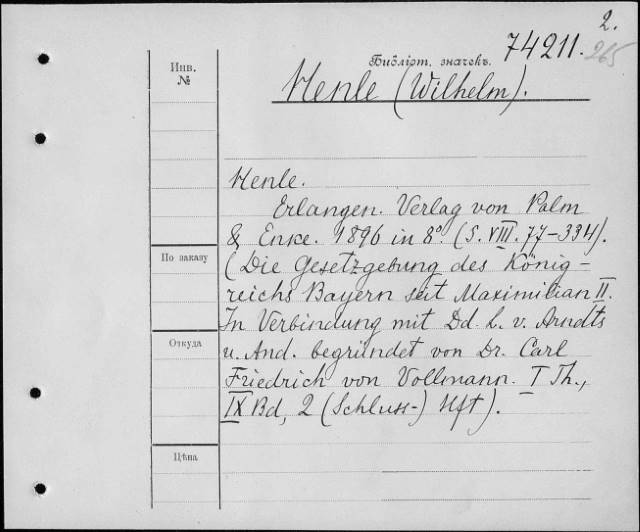 2.
74211. 265
Библіот. значекъ.
Henle (Wilhelm).
Инв.
№
Henle.
Erlangen. Verlag von Palm
& Enke. 1896 in 8º. (S. VIII. 77-334).
По заказу
(Die Gesetzgebung des König-
reichs Bayern seit Maximilian II.
In Verbindung mit Dd. L. v. Arndts
Откуда
u. And. begründet von Dr. Carl
Friedrich von Vollmann. I Th.,
IX Bd, 2 (Schluss-) Hft).
Цѣна